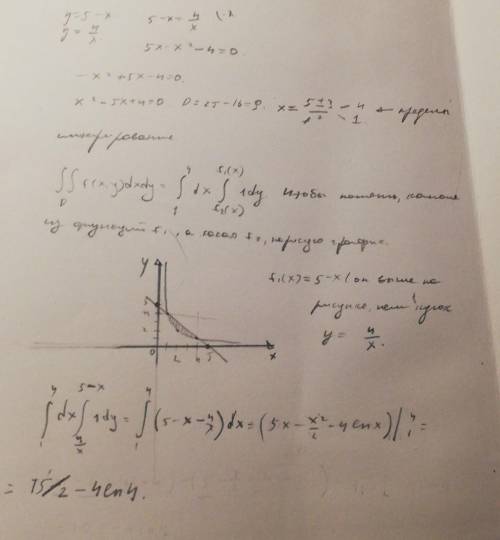 y=5-x 5-x=4/x (·x
y=4/x
5x-x²-4=0.
-x²+5x-4=0.
x²-5x+4=0 D=25-16=9. x=(5±3)/2 4 1 ← пределы
интегрирование
∬_D f(x,y)dxdy=∫_1^4 dx ∫_{f₂(x)}^{f₁(x)} 1dy Чтобы понять, какая
из функций f₁, а какая f₂, нарисую график.
y
f₁(x)=5-x/он выше на
рисунке, чем
y=4/x.
0 2 4 5 x
∫_1^4 dx ∫_{4/x}^{5-x} 1dy=∫_1^4 (5-x-4/x)dx=(5x-x²/2-4lnx)|_1^4=
=15/2-4ln4.